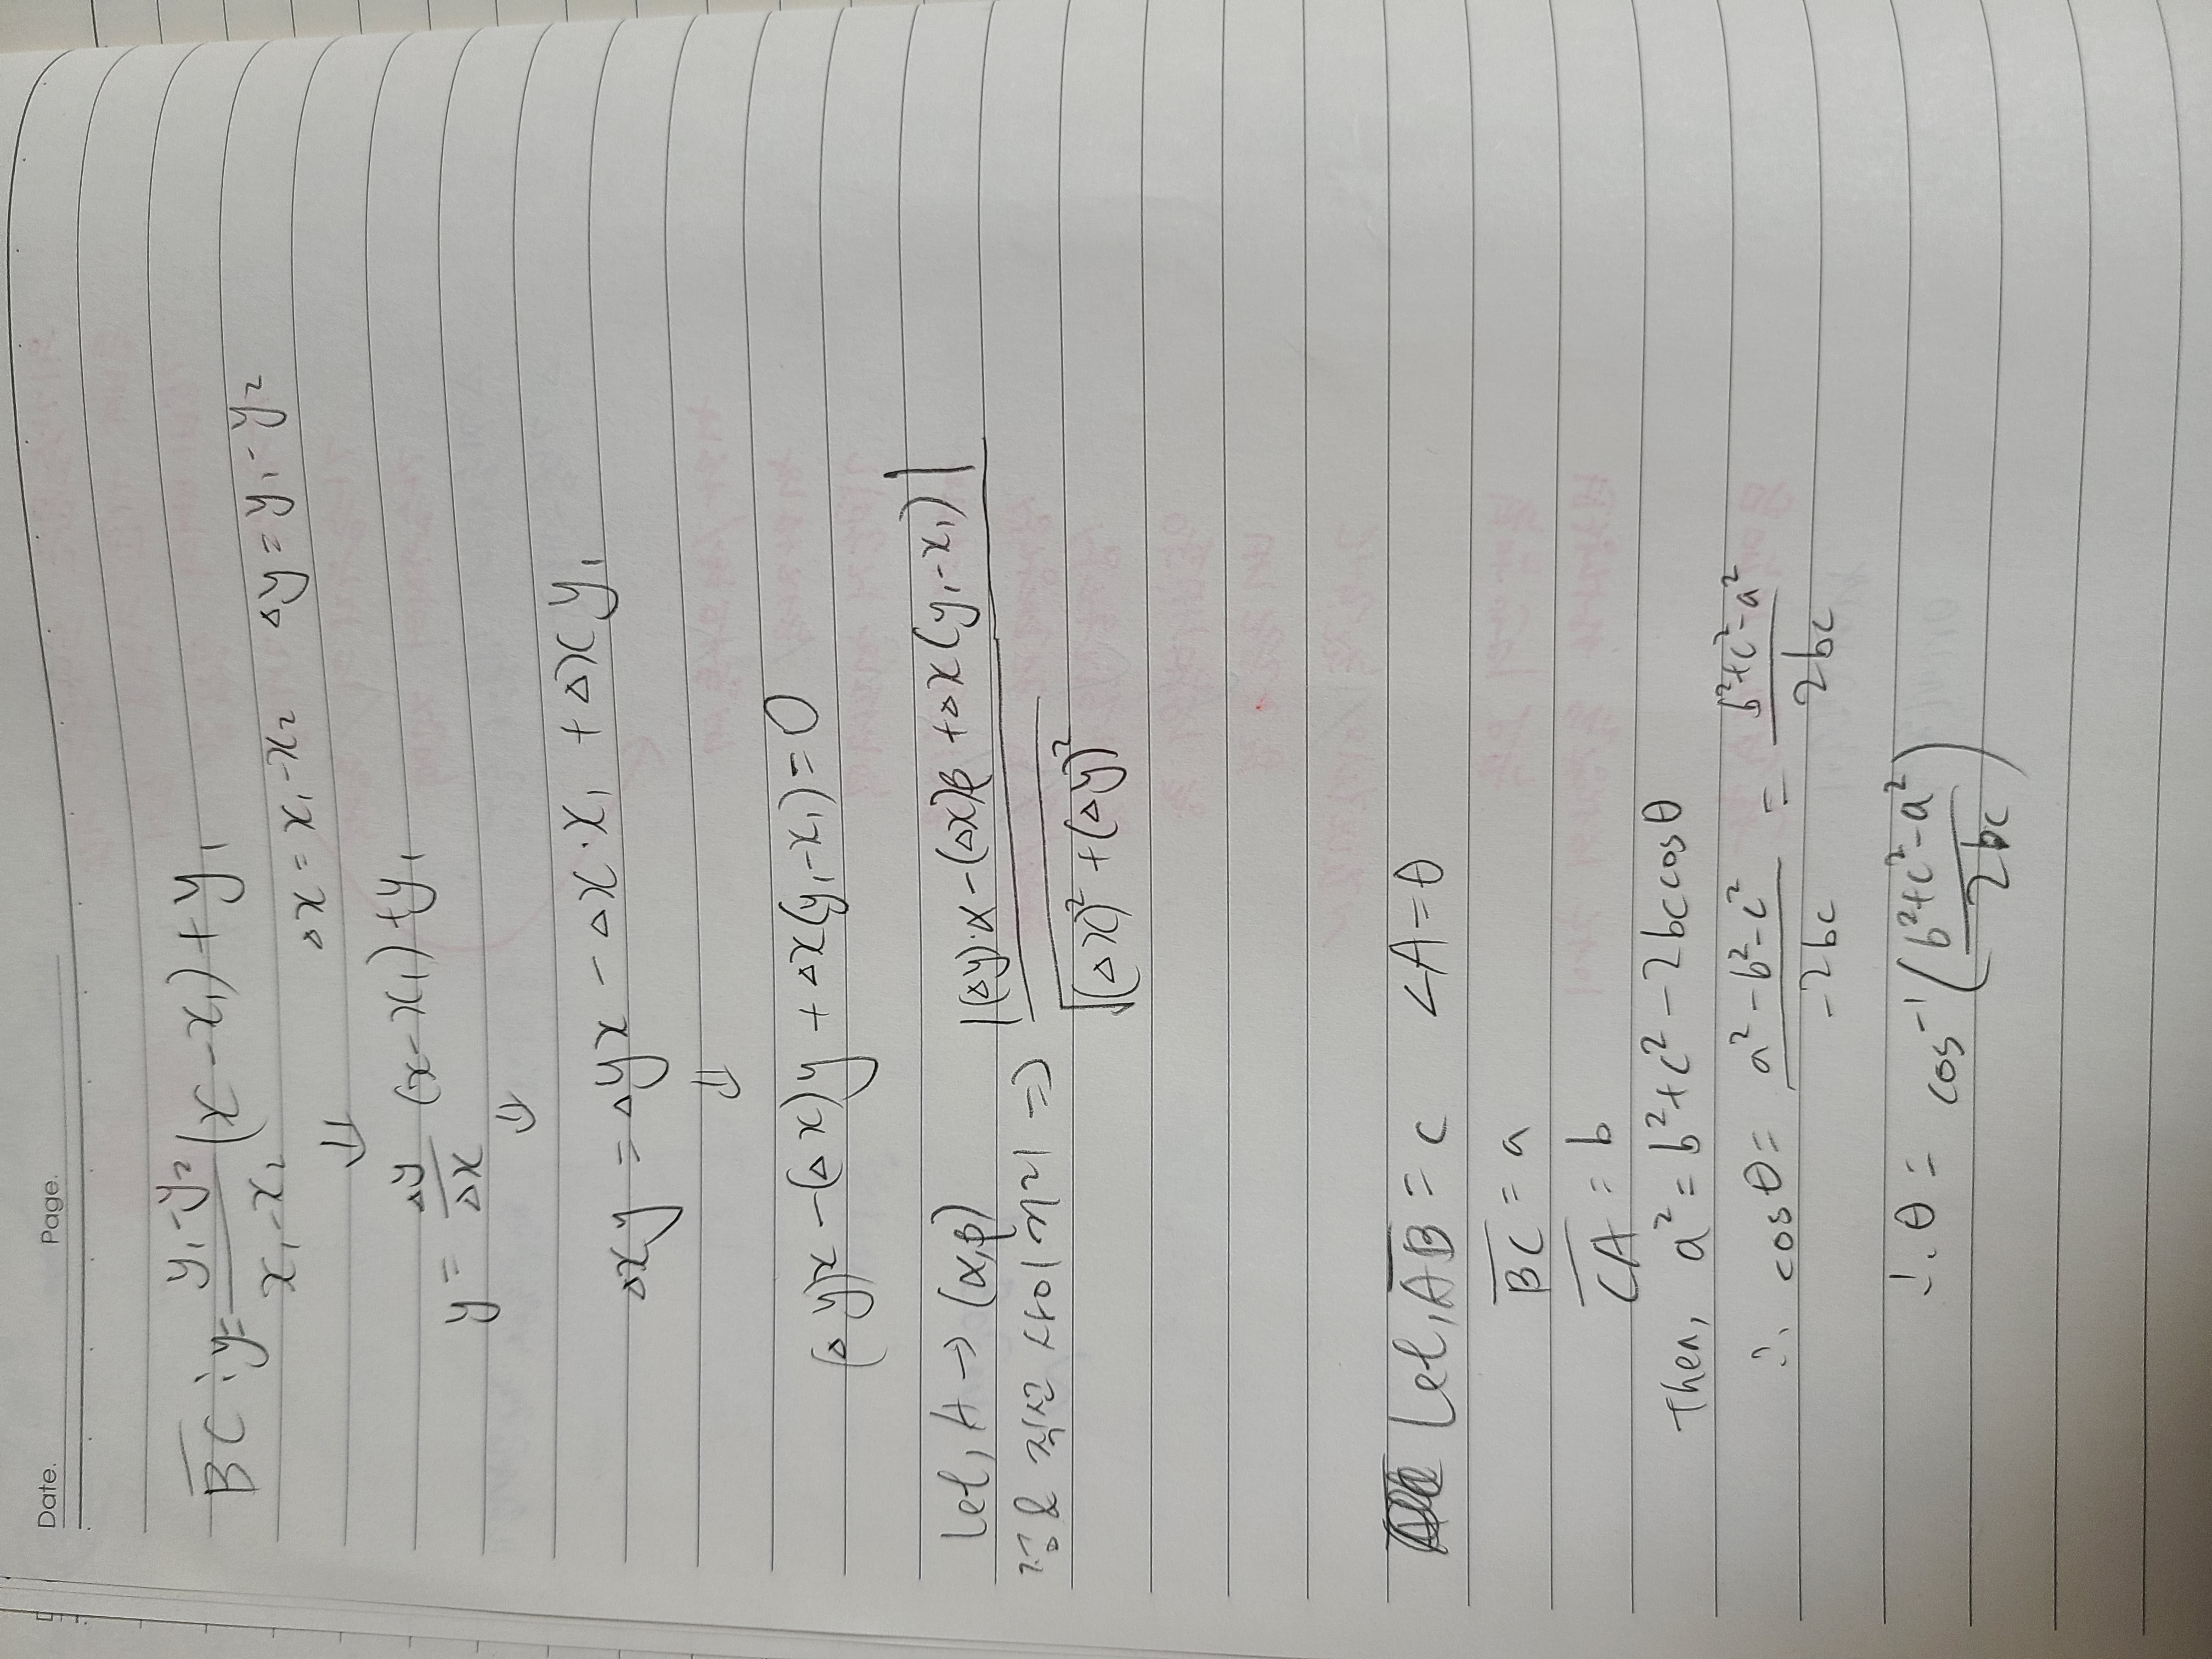 Date. Page.
B̅C̅ : y = (y₁-y₂)/(x₁-x₂) (x-x₁)+y₁
△x = x₁-x₂ △y = y₁-y₂
⇓
y = △y/△x (x-x₁)+y₁
⇓
△xy = △yx - △x·x₁ + △xy₁
⇓
(△y)x - (△x)y + △x(y₁-x₁) = 0
Let, A → (α,β)
점 & 직선 사이 거리 ⇒ |(△y)·α-(△x)β+△x(y₁-x₁)| / √((△x)²+(△y)²)
Let, A̅B̅ = c ∠A = θ
B̅C̅ = a
C̅A̅ = b
Then, a² = b²+c²-2bccosθ
∴ cosθ = (a²-b²-c²)/(-2bc) = (b²+c²-a²)/(2bc)
∴ θ = cos⁻¹((b²+c²-a²)/(2bc))